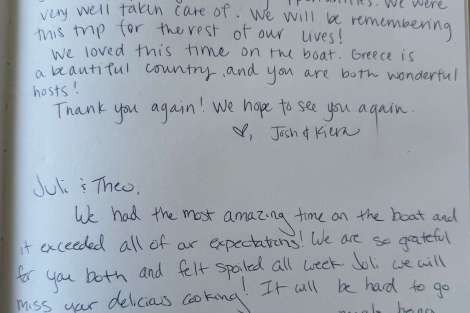 were
very well taken care of. We will be remembering
this trip for the rest of our lives!
We loved this time on the boat. Greece is
a beautiful country, and you are both wonderful
hosts!
Thank you again! We hope to see you again.
♡, Josh & Kiera
Juli & Theo,
We had the most amazing time on the boat and
it exceeded all of our expectations! We are so grateful
for you both and felt spoiled all week. Juli we will
miss your delicious cooking! It will be hard to go
being